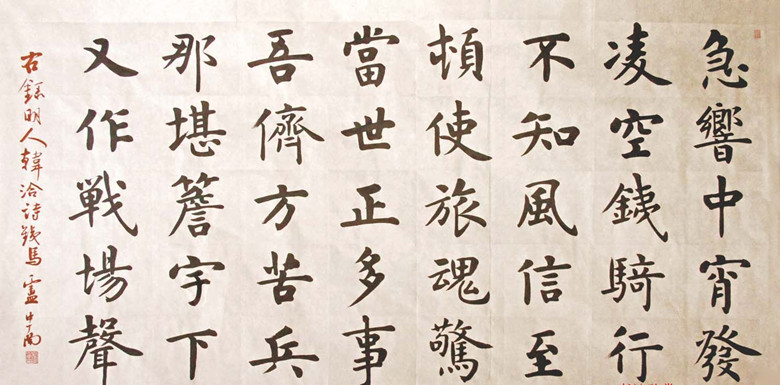 急響中宵發
凌空銕騎行
不知風信至
頓使旅魂驚
當世正多事
吾儕方苦兵
那堪簷宇下
又作戰場聲
右錄明人韓洽詩銕馬 盧中南